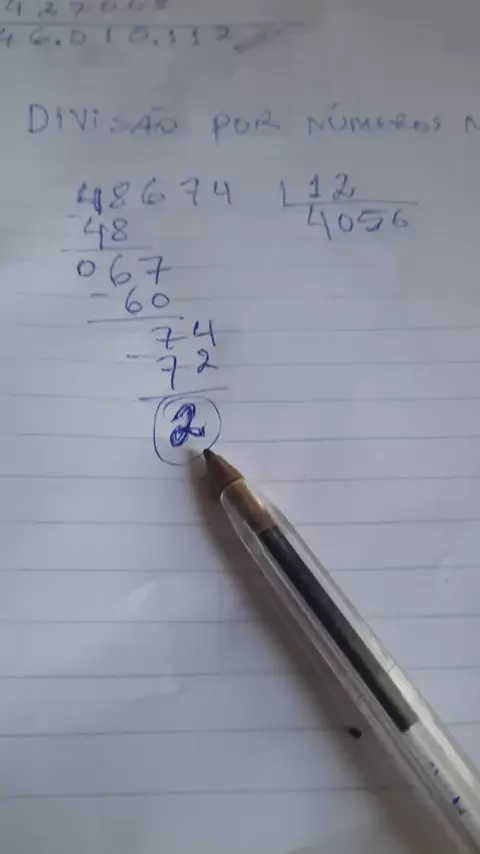 46.010.112
DIVISÃO POR NÚMEROS N
48674 12
48 4056
067
- 60
74
- 72
2